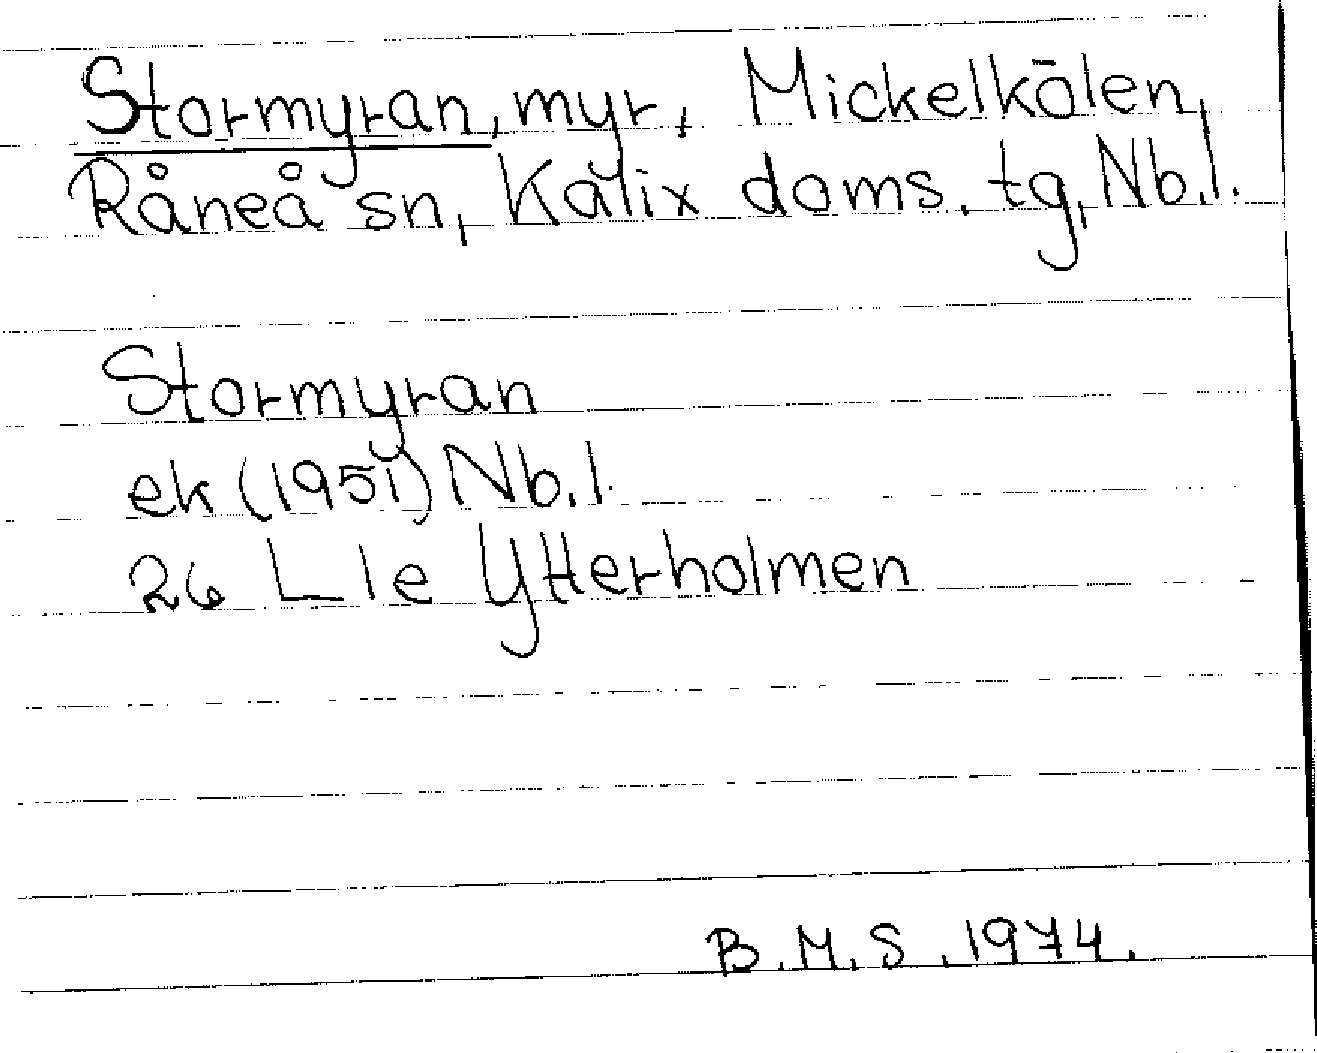 Stormyran, myr, Mickelkölen,
Råneå sn, Kalix doms. tg, Nb.l.
Stormyran
ek (1951) Nb.l.
26 L 1e Ytterholmen
B.M.S. 1974.